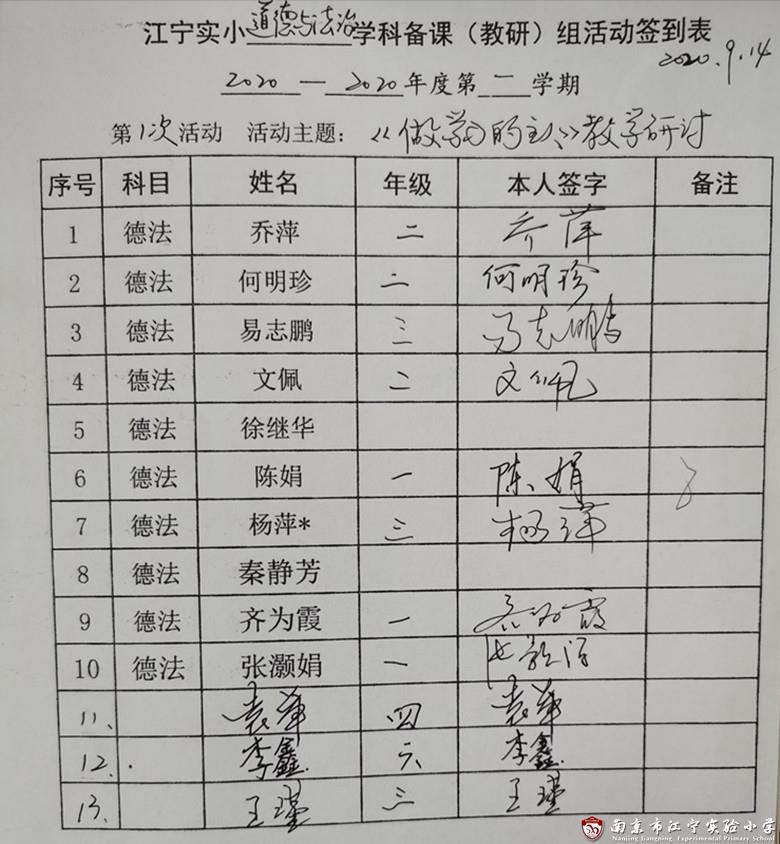 江宁实小道德与法治学科备课（教研）组活动签到表
2020.9.14
2020—2020年度第二学期
第1次活动 活动主题：《做学习的主人》教学研讨
序号 科目 姓名 年级 本人签字 备注
1 德法 乔萍 二 乔萍
2 德法 何明珍 二 何明珍
3 德法 易志鹏 三 易志鹏
4 德法 文佩 二 文佩
5 德法 徐继华
6 德法 陈娟 一 陈娟
7 德法 杨萍* 三 杨萍
8 德法 秦静芳
9 德法 齐为霞 一 齐为霞
10 德法 张灏娟 一
11、 袁萍 四 袁萍
12、 李鑫 六 李鑫
13、 王瑾 三 王瑾
南京市江宁实验小学
Nanjing Jiangning Experimental Primary School